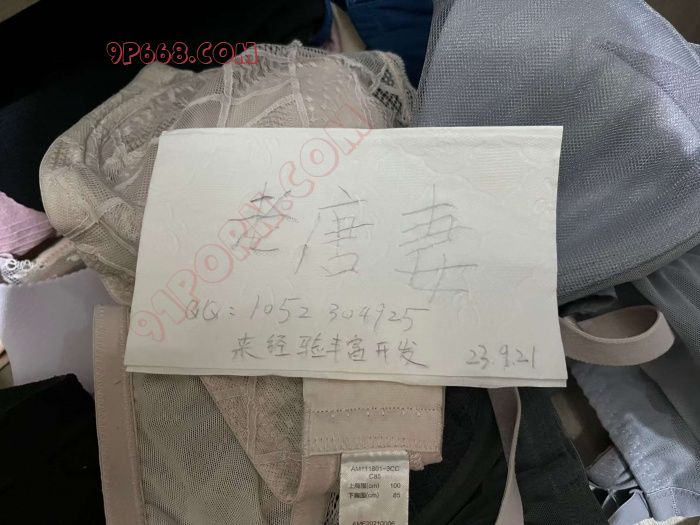 9P668.COM
91PORN.COM
老唐妻
QQ: 1052 304925
来经验丰富开发 23.9.21
AM111801-3CC
C85
上胸围(cm) 100
下胸围(cm) 85